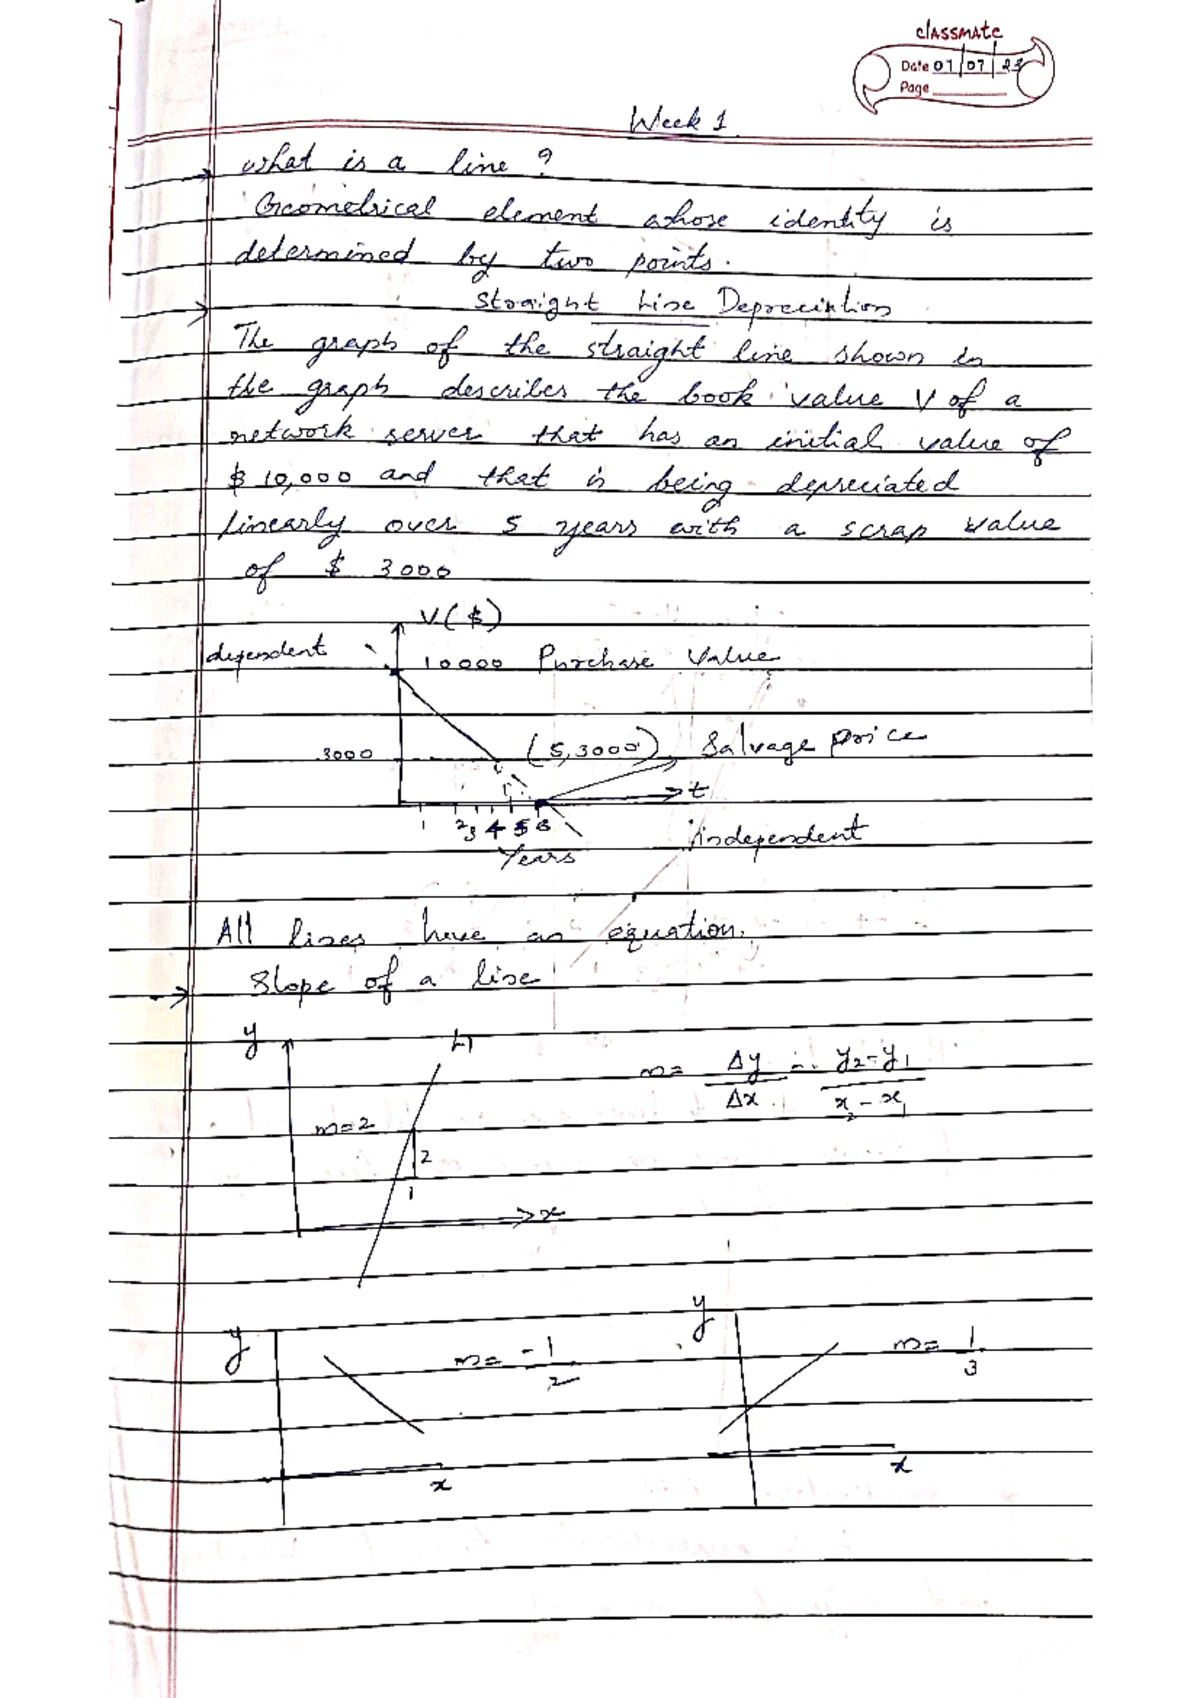 classmate
Date 07/07/23
Page
Week 1
What is a line ?
Geometrical element whose identity is
determined by two points.
Straight Line Depreciation
The graph of the straight line shown in
the graph describes the book value V of a
network server that has an initial value of
$ 10,000 and that is being depreciated
linearly over 5 years with a scrap value
of $ 3000
V($)
dependent
10000 Purchase Value
3000
(5,3000) Salvage price
t
1 2 3 4 5 6
independent
Years
All lines have an equation.
Slope of a line
y
L1
m = Δy/Δx = y2-y1/x2-x1
m=2
2
1
x
y
m = -1/2
x
y
m = 1/3
x